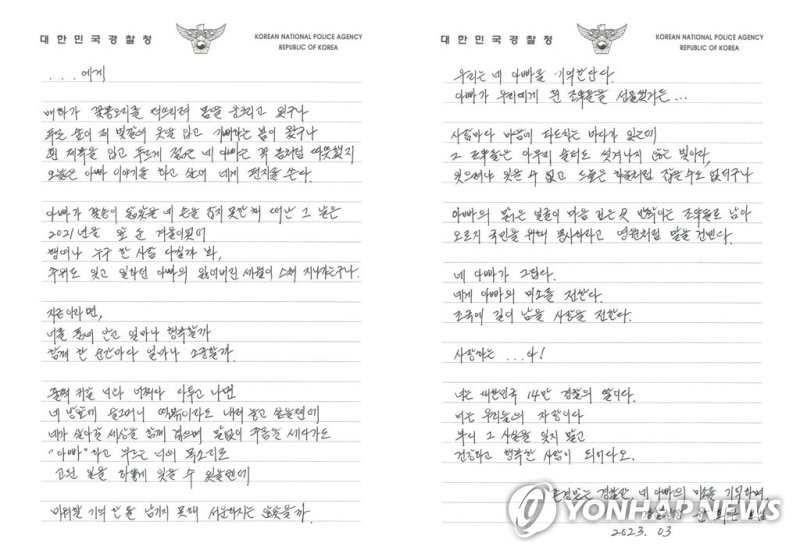 대한민국경찰청
KOREAN NATIONAL POLICE AGENCY
REPUBLIC OF KOREA
...에게
매화가 꽃봉오리를 터뜨리며 봄을 부르고 있구나
푸른 숲이 제 빛깔의 옷을 입고 기뻐하는 봄이 왔구나
흰 제복을 입고 푸르게 젊은 네 아빠는 꼭 봄처럼 따뜻했지
오늘은 아빠 이야기를 하고 싶어 네게 편지를 쓴다.
아빠가 꽃송이 같았을 네 손을 잡지 못한 채 떠난 그 날은
2021년을 앞 둔 겨울이었어
행여나 누구 한 사람 다칠까 봐,
추위도 잊고 일하던 아빠의 잃어버린 세월이 스쳐 지나가는구나.
지금이라면,
너를 품에 안고 얼마나 행복할까
함께 한 순간마다 얼마나 소중할까.
훌쩍 커질 너와 어쩌다 다투고 나면
네 방앞에 슬그머니 떡볶이라도 내려 놓고 싶을텐데
네가 살아갈 세상을 함께 겪으며 말없이 주름을 세다가도
"아빠"하고 부르는 너의 목소리로
고된 일을 하얗게 잊을 수 있을텐데
미워할 기억 한 줌 남기지 못해 서운하지는 않았을까.
대한민국경찰청
KOREAN NATIONAL POLICE AGENCY
REPUBLIC OF KOREA
우리는 네 아빠를 기억한단다.
아빠가 우리에게 흰 조약돌을 선물했거든...
사람마다 마음에 파도치는 바다가 있는데
그 조약돌은 아무리 숨어도 씻겨나지 않는 빛이라,
잊으려야 잊을 수 없고 흐르는 파도처럼 잡을 수도 없더구나
아빠의 맑은 얼굴이 마음 깊은 곳 반짝이는 조약돌로 남아
오로지 국민을 위해 봉사하라고 영원처럼 말을 건넨다.
네 아빠가 그립다.
네게 아빠의 미소를 전한다.
조국에 길이 남을 사랑을 전한다.
사랑하는 ...야!
너는 대한민국 14만 경찰의 딸이다.
너는 우리들의 자랑이다
부디 그 사실을 잊지 말고
건강하고 행복한 사람이 되어다오.
존경받는 경찰관, 네 아빠의 미소를 기억하며,
경찰청장 윤희근
2023. 03
YONHAP NEWS